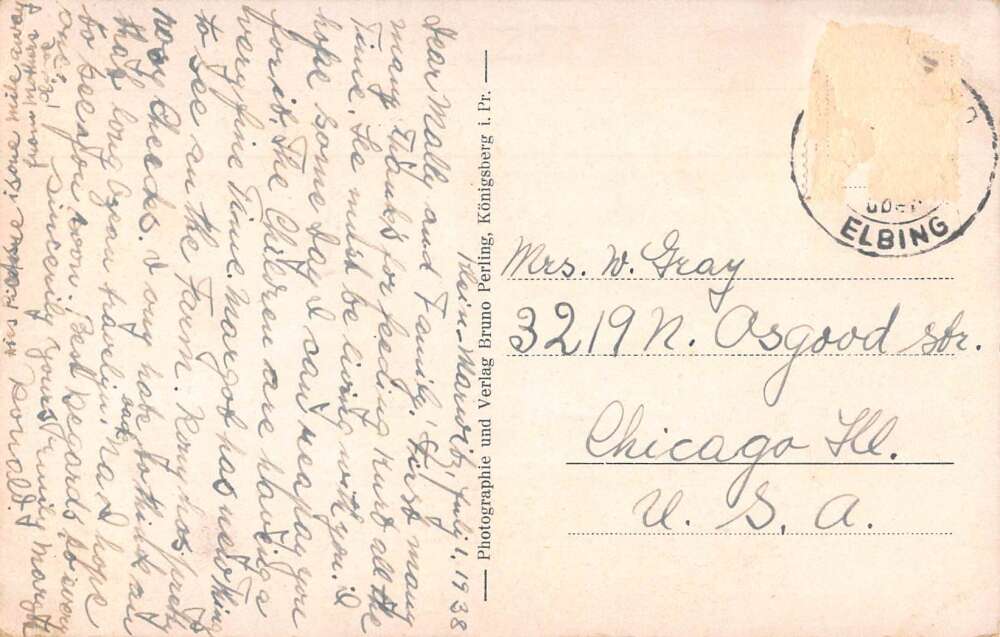 July 1, 1938
Dear Mally and Family! First many
many Thanks for feeding Kurt all the
Time. He must be living with you. I
hope some day I can repay you
for it. The Children are having a
very fine Time. Margot has nothing
to see on the Farm. Rony has pretty
rosy Cheeks. I only hate to think on
that long Ozean traveling. Na I hope
to see you soon. Best Regards to every
one, Sincerely Yours Trudy Margot
Photographie und Verlag Bruno Perling, Königsberg i. Pr.
ELBING
Mrs. W. Gray
3219 N. Osgood str.
Chicago Ill.
U. S. A.